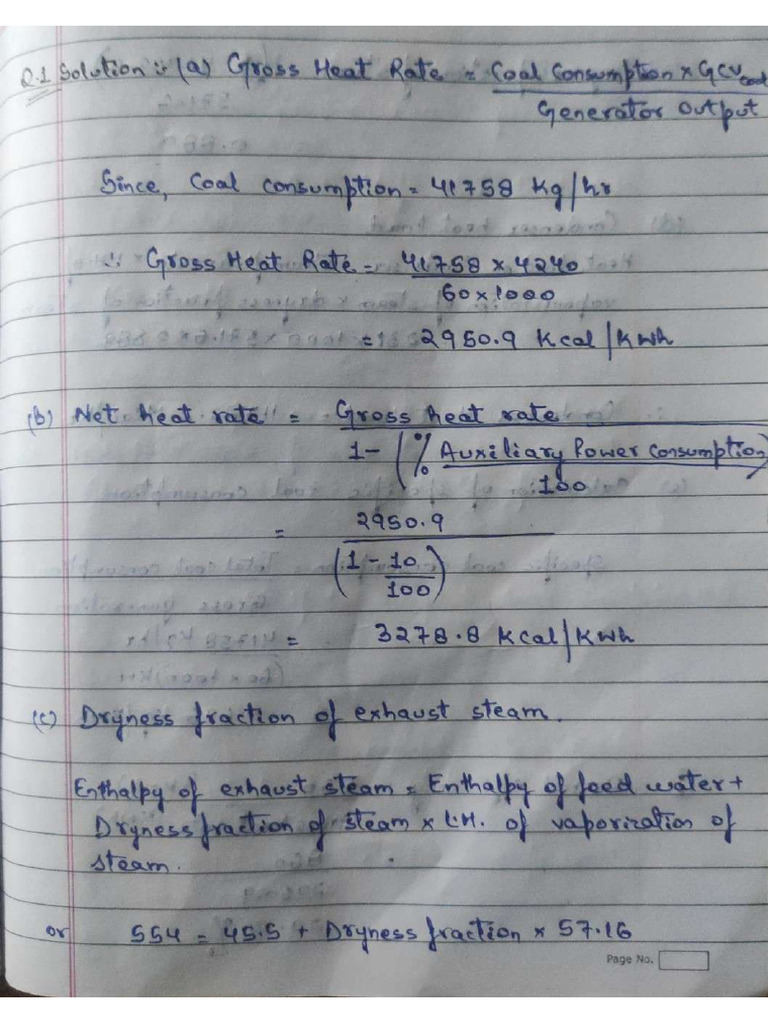 Q.1 Solution :- (a) Gross Heat Rate = Coal Consumption × GCV coal
Generator output
Since, Coal consumption = 41758 kg/hr
∴ Gross Heat Rate = 41758 × 4240
60 × 1000
= 2950.9 Kcal/Kwh
(b) Net heat rate = Gross heat rate
1 - (% Auxiliary Power Consumption)
100
= 2950.9
(1 - 10
100)
= 3278.8 Kcal/Kwh
(c) Dryness fraction of exhaust steam.
Enthalpy of exhaust steam = Enthalpy of feed water +
Dryness fraction of steam × L.H. of vaporization of
steam.
or 554 = 45.5 + Dryness fraction × 57.16
Page No.